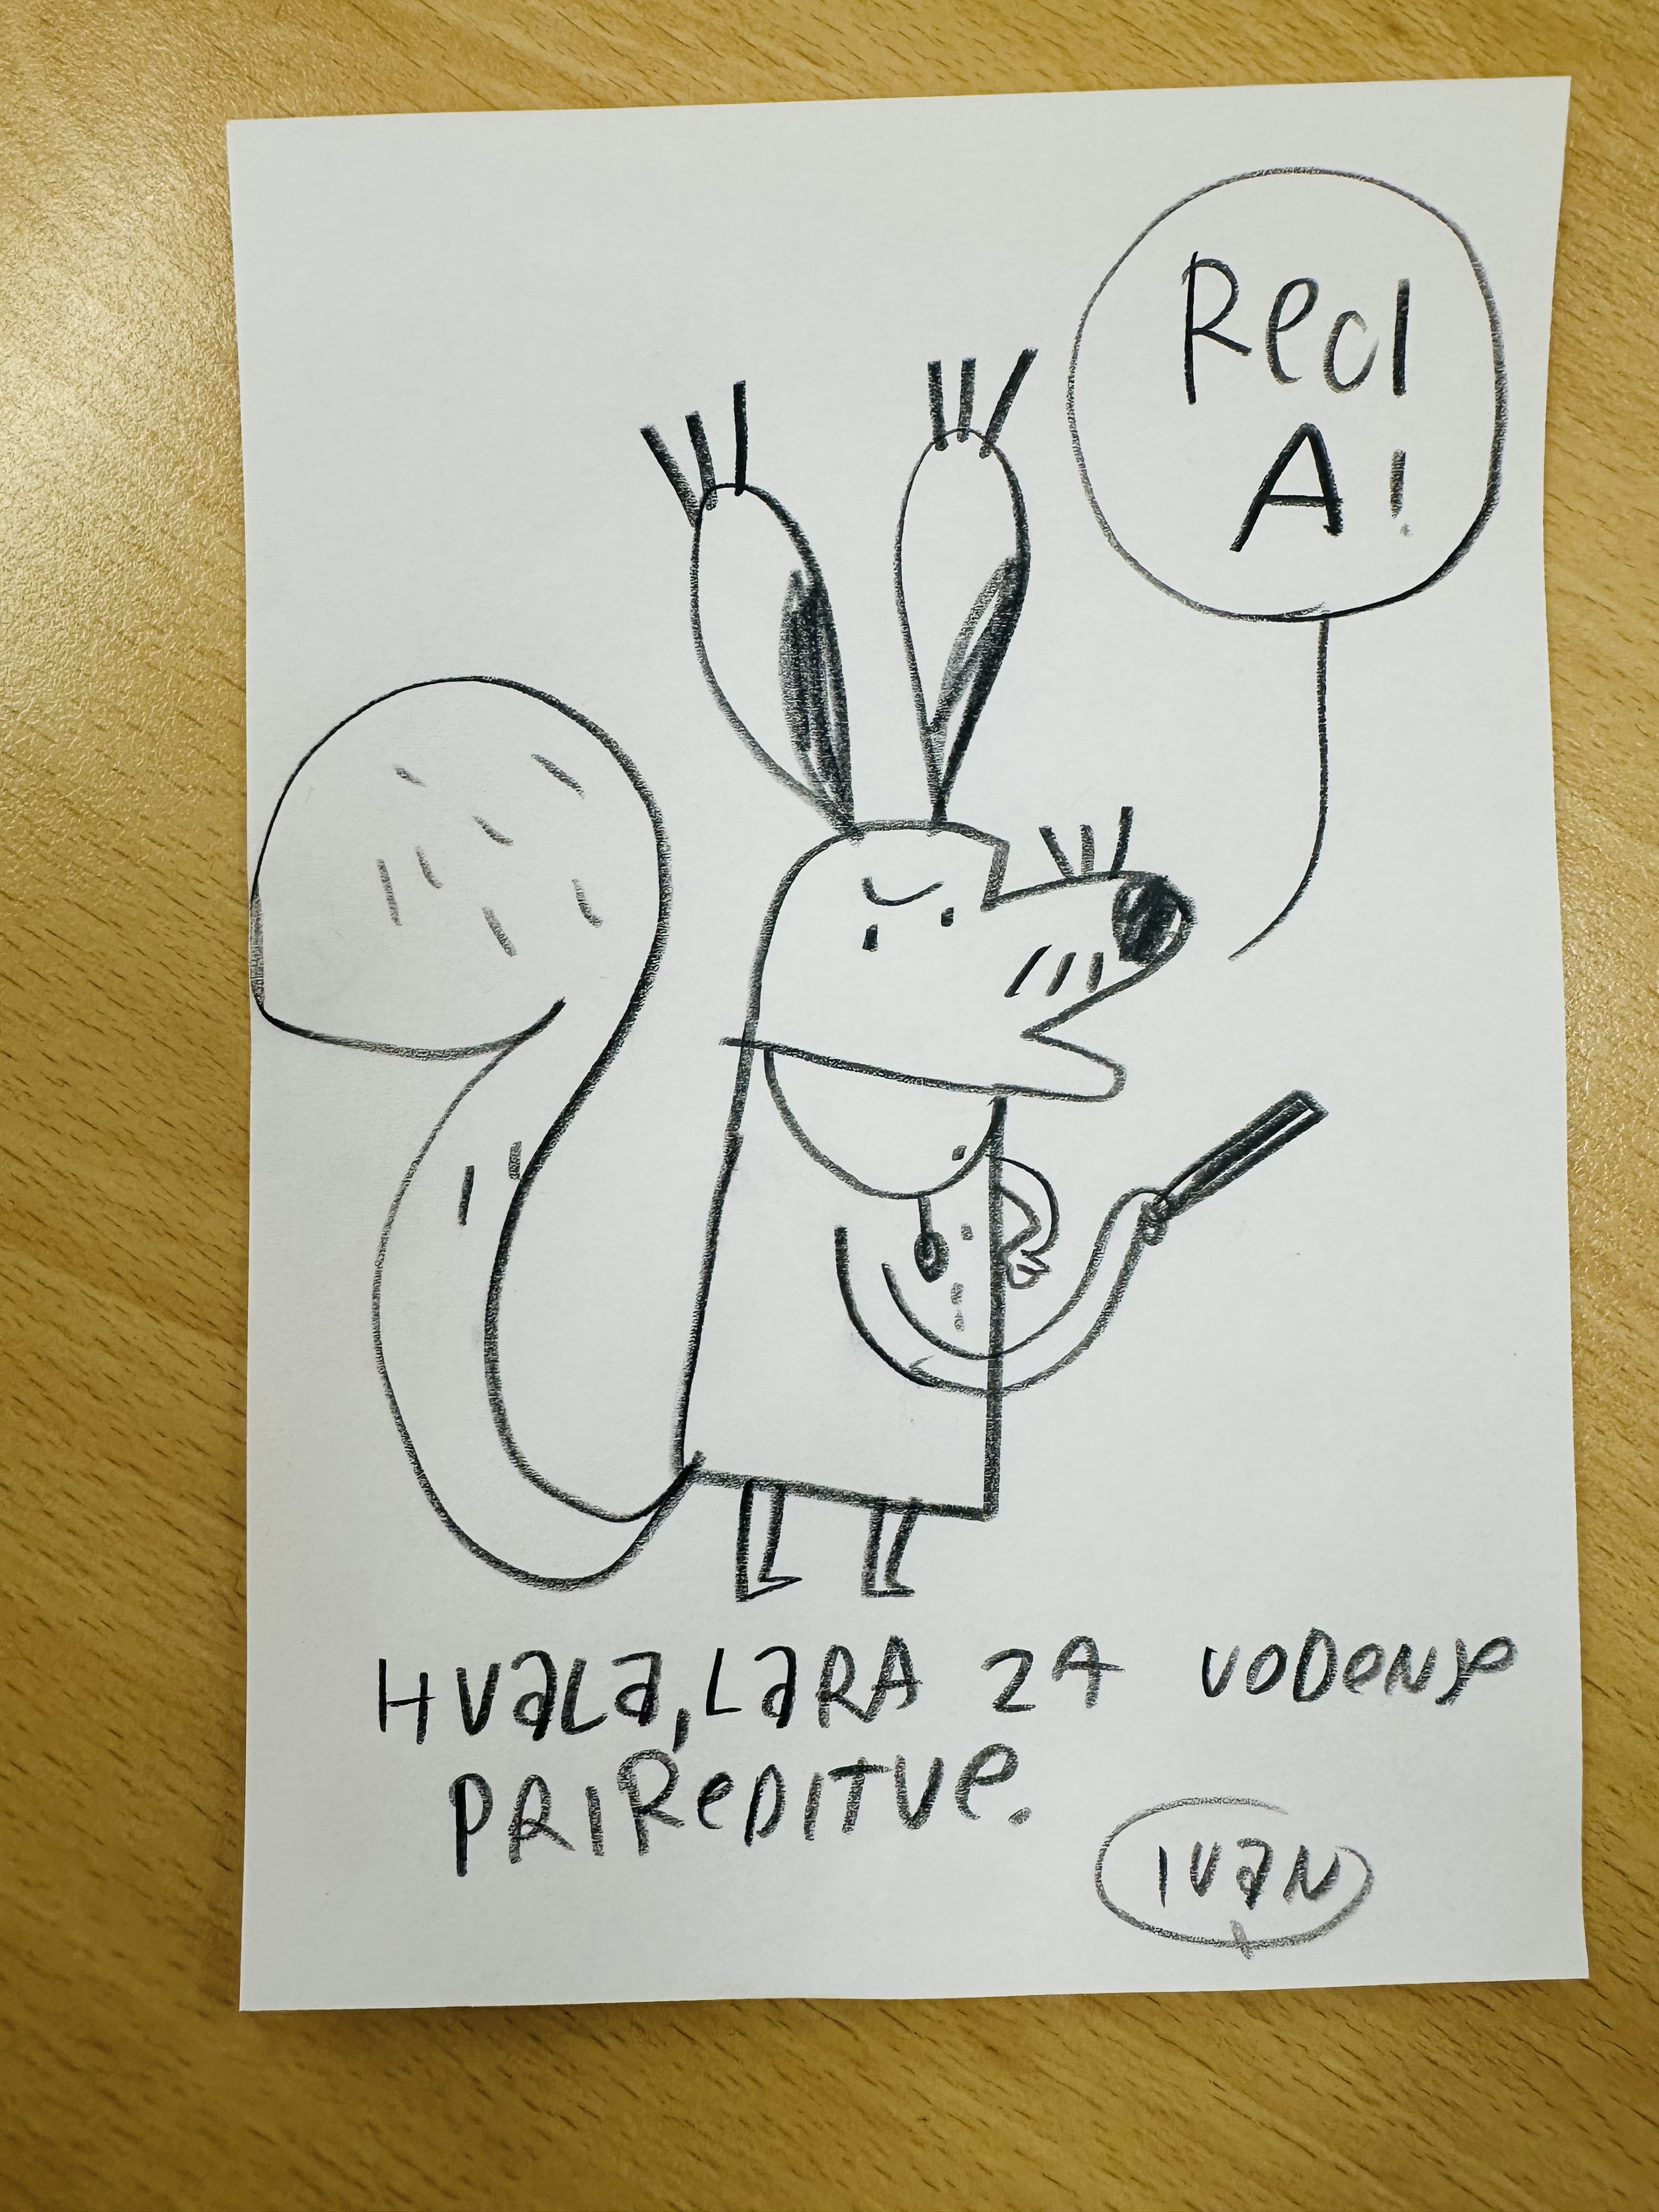 RecI
A!
HVaLa, LaRA ZA VODeNJe
PRIReDITVe.
IVaN